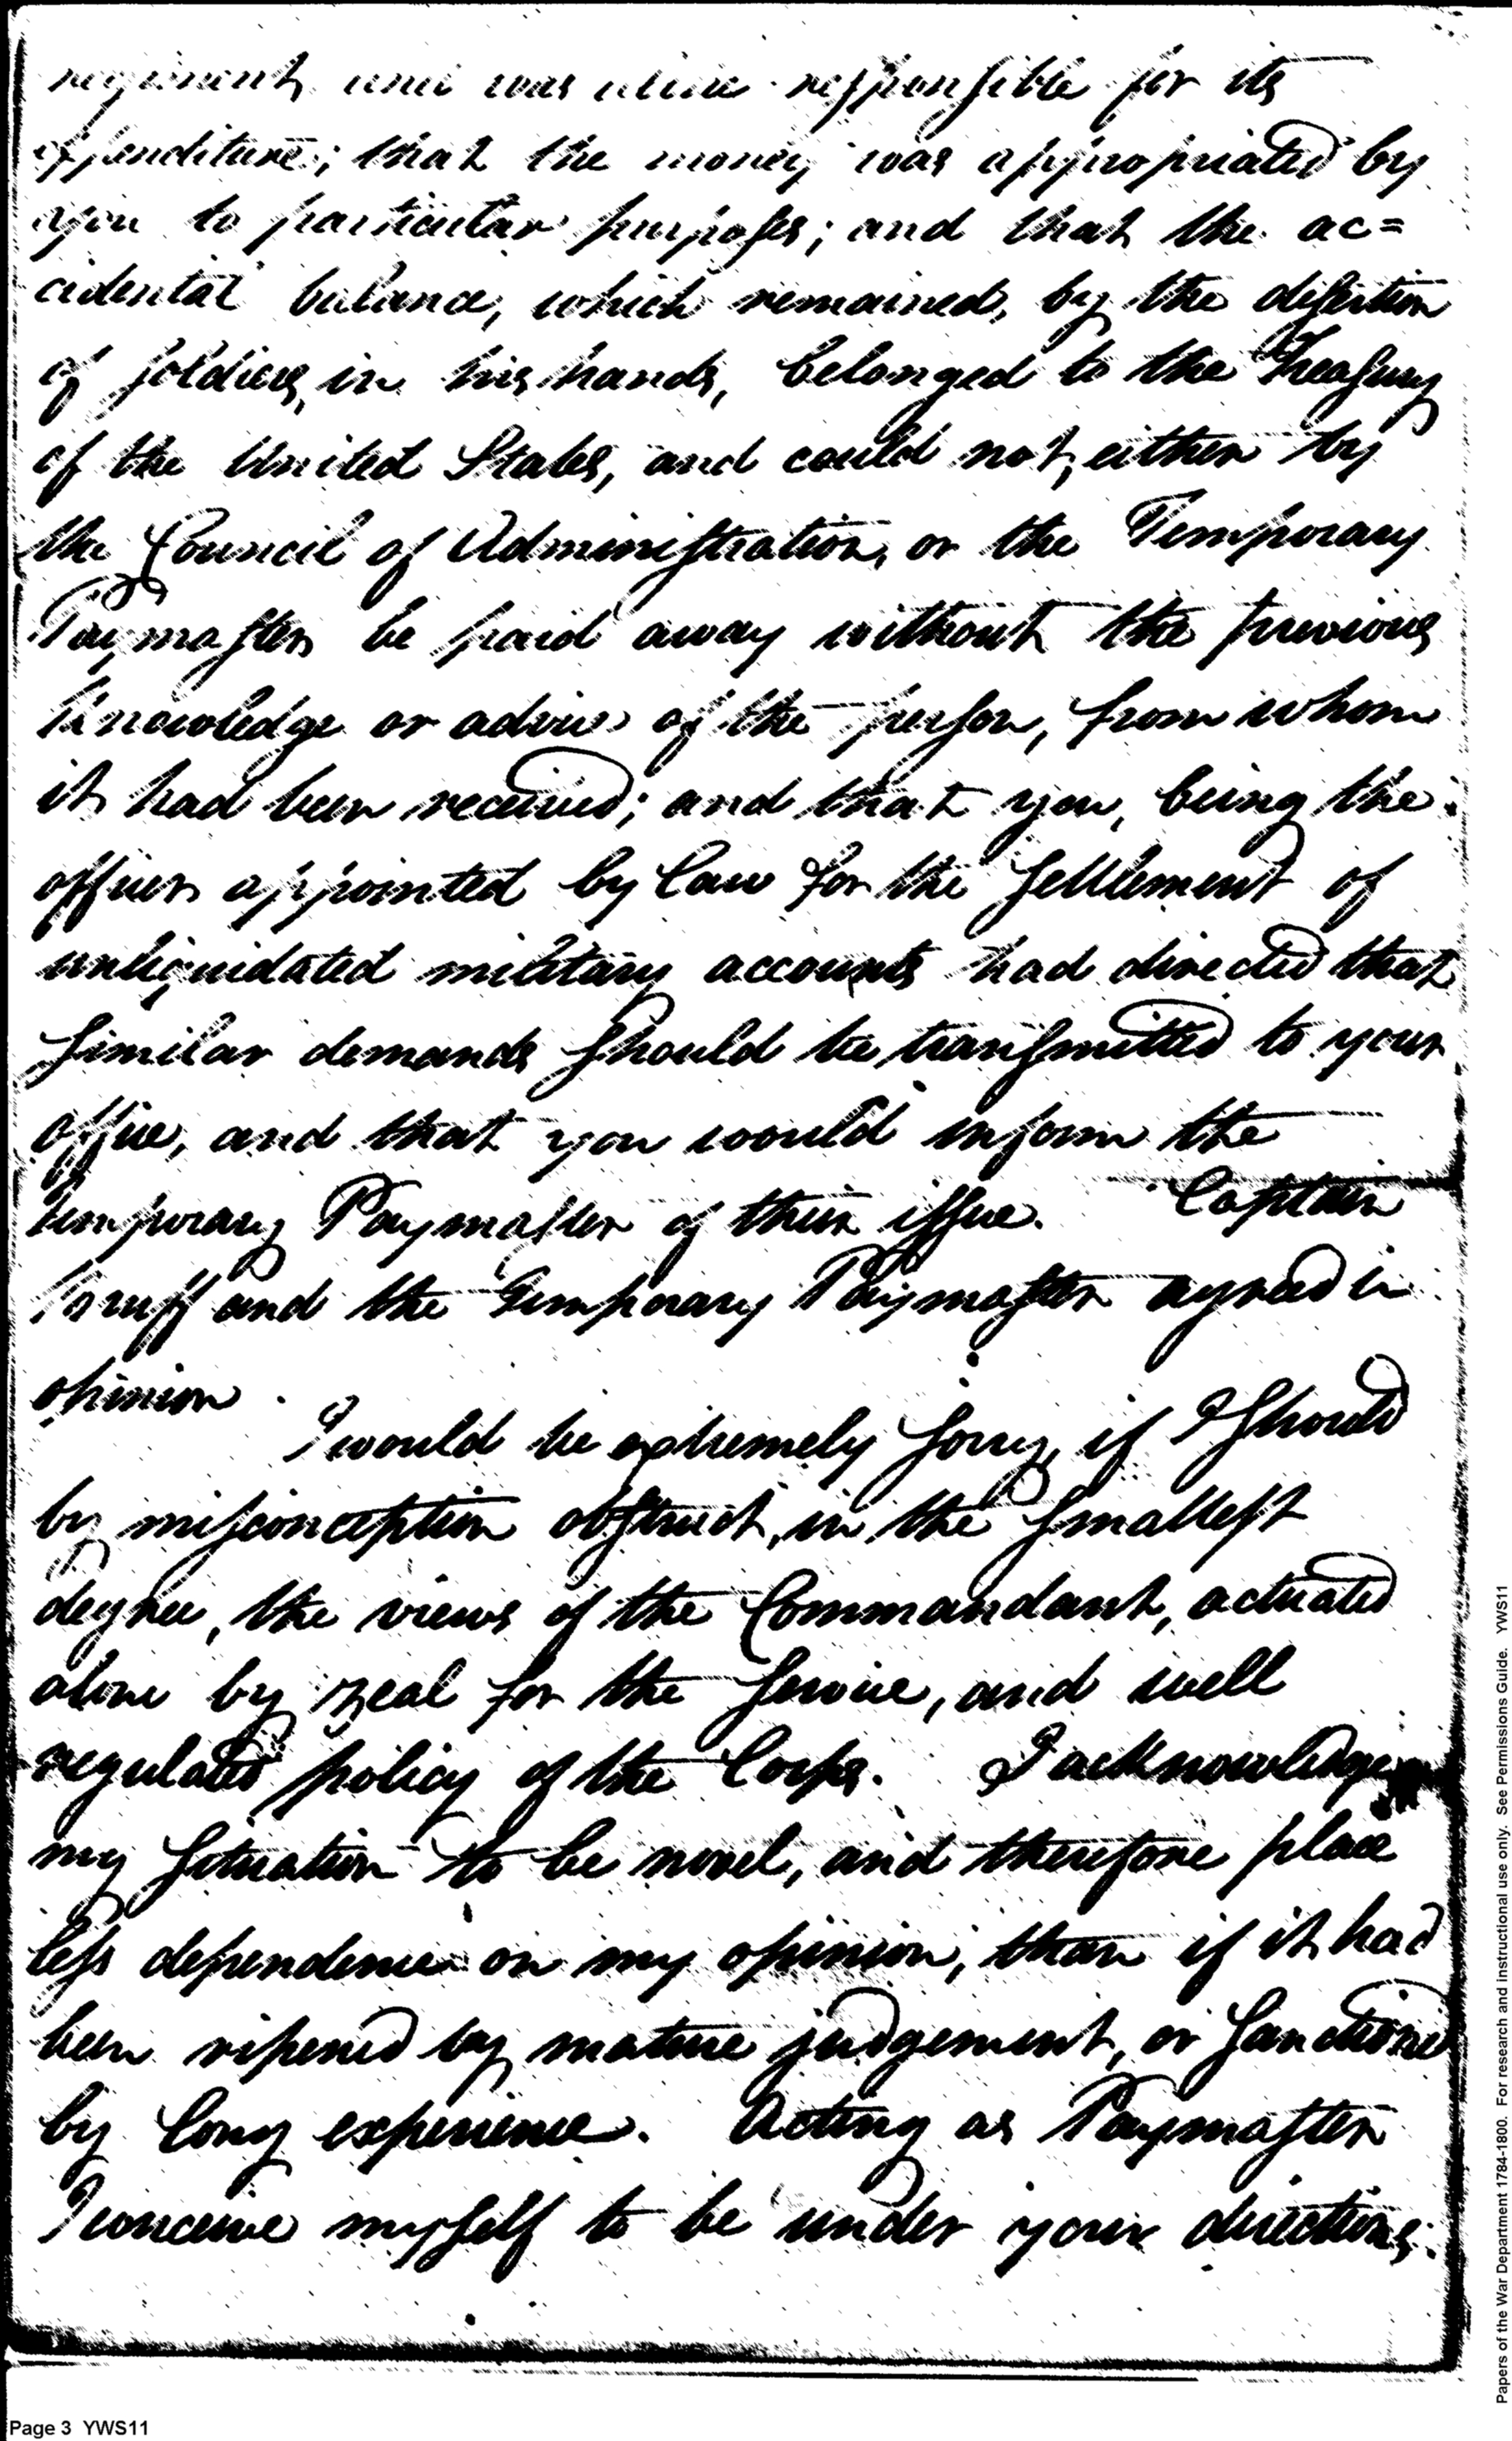 regiment and was alone responsible for its
expenditure; that the money was appropriated by
you to particular purposes; and that the ac=
cidental balance, which remained, by the desertion
of soldiers, in his hands, belonged to the Treasury
of the United States, and could not, either by
the Council of Administration, or the Temporary
Paymaster be paid away without the previous
knowledge or advice of the person, from whom
it had been received; and that you, being the
officer appointed by Law for the settlement of
unliquidated military accounts had directed that
similar demands should be transmitted to your
office, and that you would inform the
temporary Paymaster of their issue. Captain
Bruff and the Temporary Paymaster agreed in
opinion.
I would be extremely sorry, if I should
by misconception obstruct, in the smallest
degree, the views of the Commandant, actuated
alone by zeal for the service, and well
regulated policy of the Corps. I acknowledge
my situation to be novel, and therefore place
less dependence on my opinion, than if it had
been ripened by mature judgement, or sanctioned
by long experience. Acting as Paymaster
I conceive myself to be under your directions;
Page 3 YWS11
Papers of the War Department 1784-1800. For research and instructional use only. See Permissions Guide. YWS11